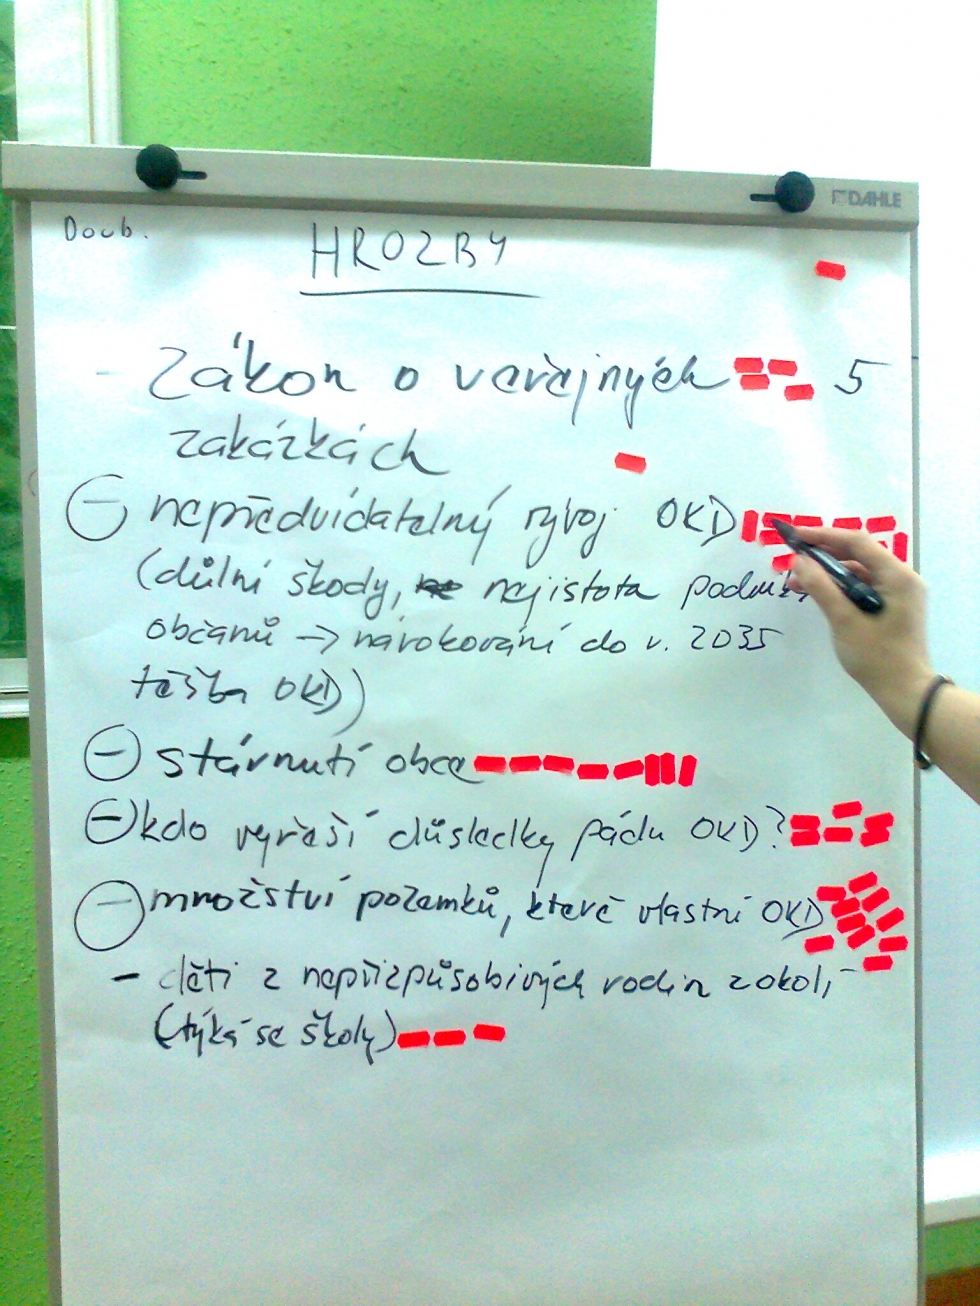 DAHLE
Doub.
HROZBY
- Zákon o veřejných 5
zakázkách
- nepředvídatelný vývoj OKD
(důlní škody, nejistota
občanů → nárokování do r. 2035
těžba OKD)
- stárnutí obce
- kdo vyřeší důsledky pádu OKD?
- množství pozemků, které vlastní OKD
- děti z nepřizpůsobivých rodin z okolí
(týká se školy)